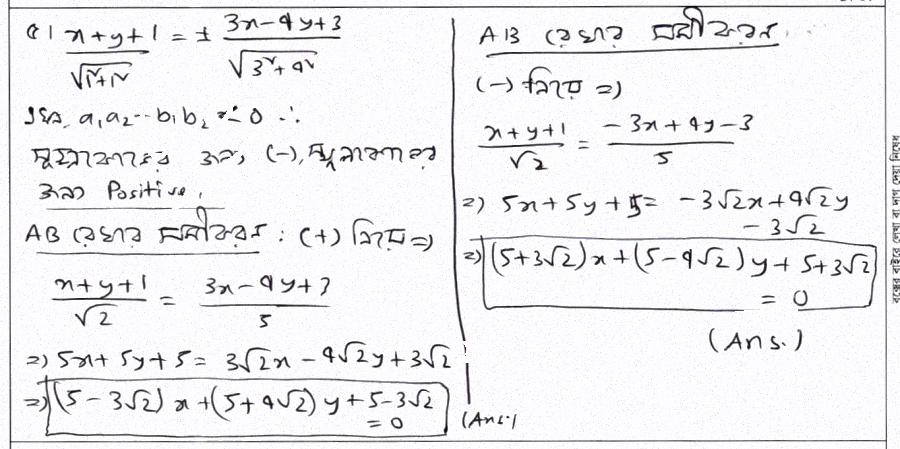 ৫। x+y+1 / √(1²+1²) = ± 3x-4y+3 / √(3²+4²)
a₁a₂ b₁b₂ < 0 ∴
সূক্ষ্মকোণের জন্য, (-), স্থূলকোণের
জন্য Positive,
AB রেখার সমীকরণ : (+) নিয়ে ⇒
x+y+1 / √2 = 3x-4y+3 / 5
⇒) 5x+5y+5 = 3√2x - 4√2y+3√2
⇒) (5-3√2) x+(5+4√2) y+5-3√2
= 0 (Ans.)
AB রেখার সমীকরণ
(-) নিয়ে ⇒)
x+y+1 / √2 = -3x+4y-3 / 5
⇒) 5x+5y+5= -3√2x+4√2y
-3√2
⇒) (5+3√2)x+(5-4√2)y+5+3√2
= 0
(Ans.)
বক্সের বাইরে লেখা বা দাগ দেয়া নিষেধ